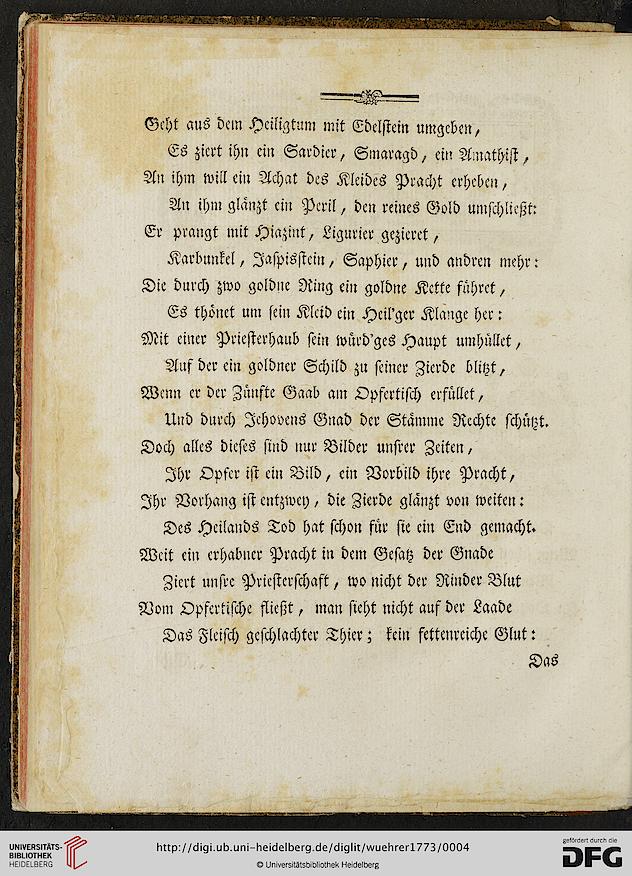 Geht aus dem Heiligtum mit Edelstein umgeben,
Es ziert ihn ein Sardier, Smaragd, ein Amathist,
An ihm will ein Achat des Kleides Pracht erheben,
An ihm glänzt ein Peril, den reines Gold umschließt:
Er prangt mit Hiazint, Ligurier gezieret,
Karbunkel, Jaspisstein, Saphier, und andren mehr:
Die durch zwo goldne Ring ein goldne Kette führet,
Es thönet um sein Kleid ein Heil'ger Klange her:
Mit einer Priesterhaub sein würd'ges Haupt umhüllet,
Auf der ein goldner Schild zu seiner Zierde blitzt,
Wenn er der Zünfte Gaab am Opfertisch erfüllet,
Und durch Jehovens Gnad der Stämme Rechte schützt.
Doch alles dieses sind nur Bilder unsrer Zeiten,
Ihr Opfer ist ein Bild, ein Vorbild ihre Pracht,
Ihr Vorhang ist entzwey, die Zierde glänzt von weiten:
Des Heilands Tod hat schon für sie ein End gemacht.
Weit ein erhabner Pracht in dem Gesatz der Gnade
Ziert unsre Priesterschaft, wo nicht der Rinder Blut
Vom Opfertische fließt, man sieht nicht auf der Laade
Das Fleisch geschlachter Thier; kein fettenreiche Glut:
Das
UNIVERSITÄTS-
BIBLIOTHEK
HEIDELBERG
http://digi.ub.uni-heidelberg.de/diglit/wuehrer1773/0004
© Universitätsbibliothek Heidelberg
gefördert durch die
DFG